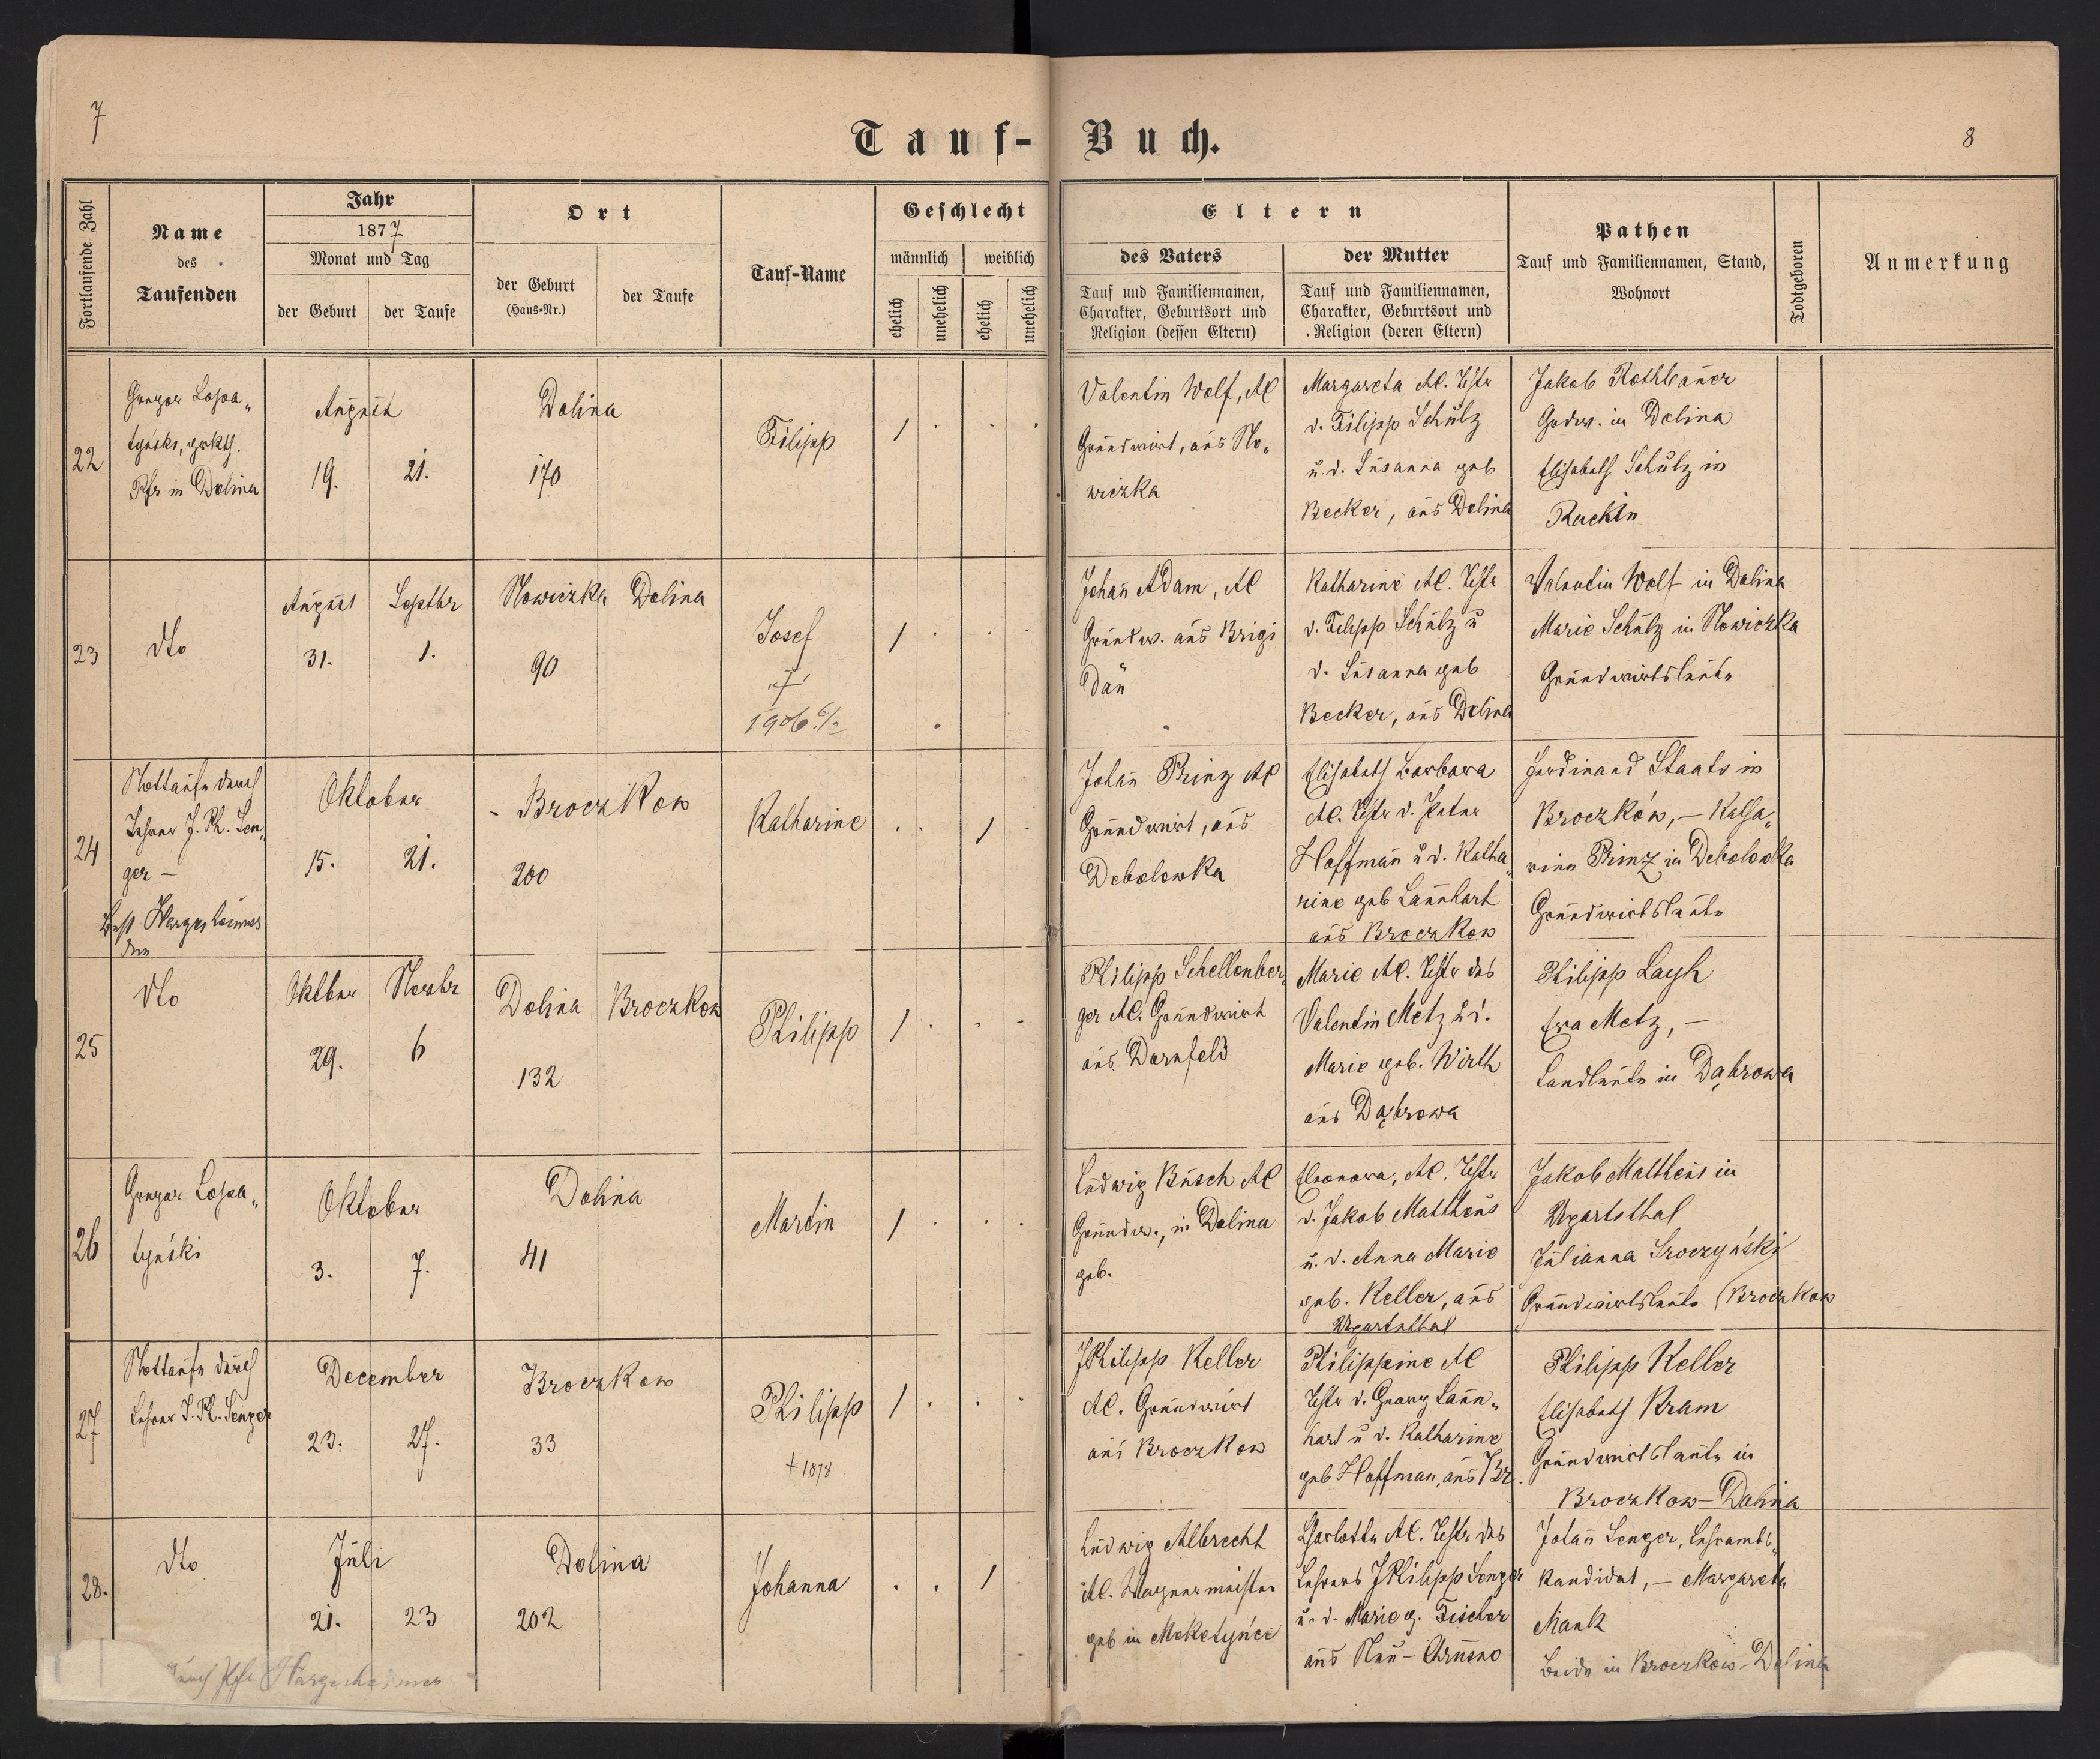 7
Tauf-Buch.
8
Fortlaufende Zahl
Name
des
Taufenden
Jahr
1877
Monat und Tag
der Geburt
der Taufe
Ort
der Geburt
(Haus-Nr.)
der Taufe
Tauf-Name
Geschlecht
männlich
weiblich
ehelich
unehelich
ehelich
unehelich
Eltern
des Vaters
Tauf und Familiennamen,
Charakter, Geburtsort und
Religion (dessen Eltern)
der Mutter
Tauf und Familiennamen,
Charakter, Geburtsort und
Religion (deren Eltern)
Pathen
Tauf und Familiennamen, Stand,
Wohnort
Todtgeboren
Anmerkung
22
Gregor Lopa„
tyński, grkth.
Pfr in Dolina
August
19.
21.
Dolina
170
Filipp
1
Valentin Wolf, AC
Grundwirt, aus No„
wiczka
Margareta AC. Tchtr
d. Filipp Schulz
u. d. Susanna geb
Becker, aus Dolina
Jakob Rothbauer
Grdw. in Dolina
Elisabeth Schulz in
23
dto
August
31.
Septbr
1.
Nowiczka
90
Dolina
Josef
†
1906
1
Johan̄ Adam, AC
Grundw. aus Brigi
dau
Katharine AC. Tcht
d. Filipp Schulz u
d. Susanna geb
Becker, aus Dolina
Valentin Wolf in Dolina
Marie Schulz in Nowiczka
Grundwirtsleute
24
Nottaufe durch
Lehrer J. Ph. Sen„
ger –
Oktober
15.
21.
Broczkow
200
Katharine
1
Johan̄ Prinz AC
Grundwirt, aus
Debolowka
Elisabeth Barbara
AC. Tchtr d. Peter
Hoffman̄ u d. Katha„
rine geb Lan̄hart
aus Broczkow
Ferdinand Staats in
Broczków, – Katha„
rine Prinz in Debolowka
Grundwirtsleute
25
dto
Oktber
29.
Novbr
6
Dolina
132
Broczkow
Philipp
1
Philipp Schellenber„
ger AC. Grundwirt
aus Dornfeld
Marie AC. Tchtr des
Valentin Metz u d.
Marie geb. Wirth
aus Dąbrowa
Philipp Layh
Eva Metz, –
Landleute in Dąbrowa
26
Gregor Lopa„
tyński
Oktober
3.
7.
Dolina
41
Martin
1
Ludwig Busch AC
Grundw., in Dolina
geb.
Eleonora, AC. Tchtr
d. Jakob Mattheus
u. d. Anna Marie
geb. Keller, aus
Ugartsthal
Jakob Mattheus in
Ugartsthal
Julianna Sroczyński
Grundwirtsleute (Broczkow
27
Nottaufe durch
Lehrer J. Ph. Senger
December
23.
27.
Broczkow
33
Philipp
† 1878
1
JPhilipp Keller
AC. Grundwirt
aus Broczkow
Philippine AC
Tchtr d. Georg Lan̄„
hart u d. Katharine
geb Hoffman, aus Br.
Philipp Keller
Elisabeth Kram
Grundwirtsleute in
Broczkow–Dolina
28.
dto
Juli
21.
23
Dolina
202
Johanna
1
Ludwig Albrecht
AC. Wagnermeister
geb in Mokotyńce
Charlotte AC. Tchtr des
Lehrers JPhilipp Senger
u. d. Marie g. Fischer
aus Neu-Chrusno
Johan̄ Senger, Lehramts„
kandidat, – Margareta
Mank
Beide in Broczkow–Dolina
durch Pfr Hargesheimer